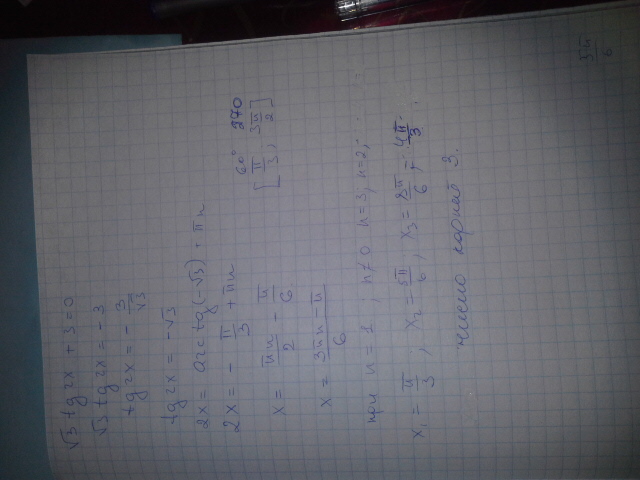 √3 tg2x + 3 = 0
√3 tg2x = -3
tg2x = - 3/√3
tg2x = -√3
2x = arctg(-√3) + πn
2x = - π/3 + πn
60° 270
[π/3; 3π/2]
x = πn/2 - π/6
x = 3πn - π/6
при n = 1; n≠0 n=3; n=2;
x₁ = π/3; x₂ = 5π/6; x₃ = 8π/6 = 4π/3.
число корней 3.
5π/6